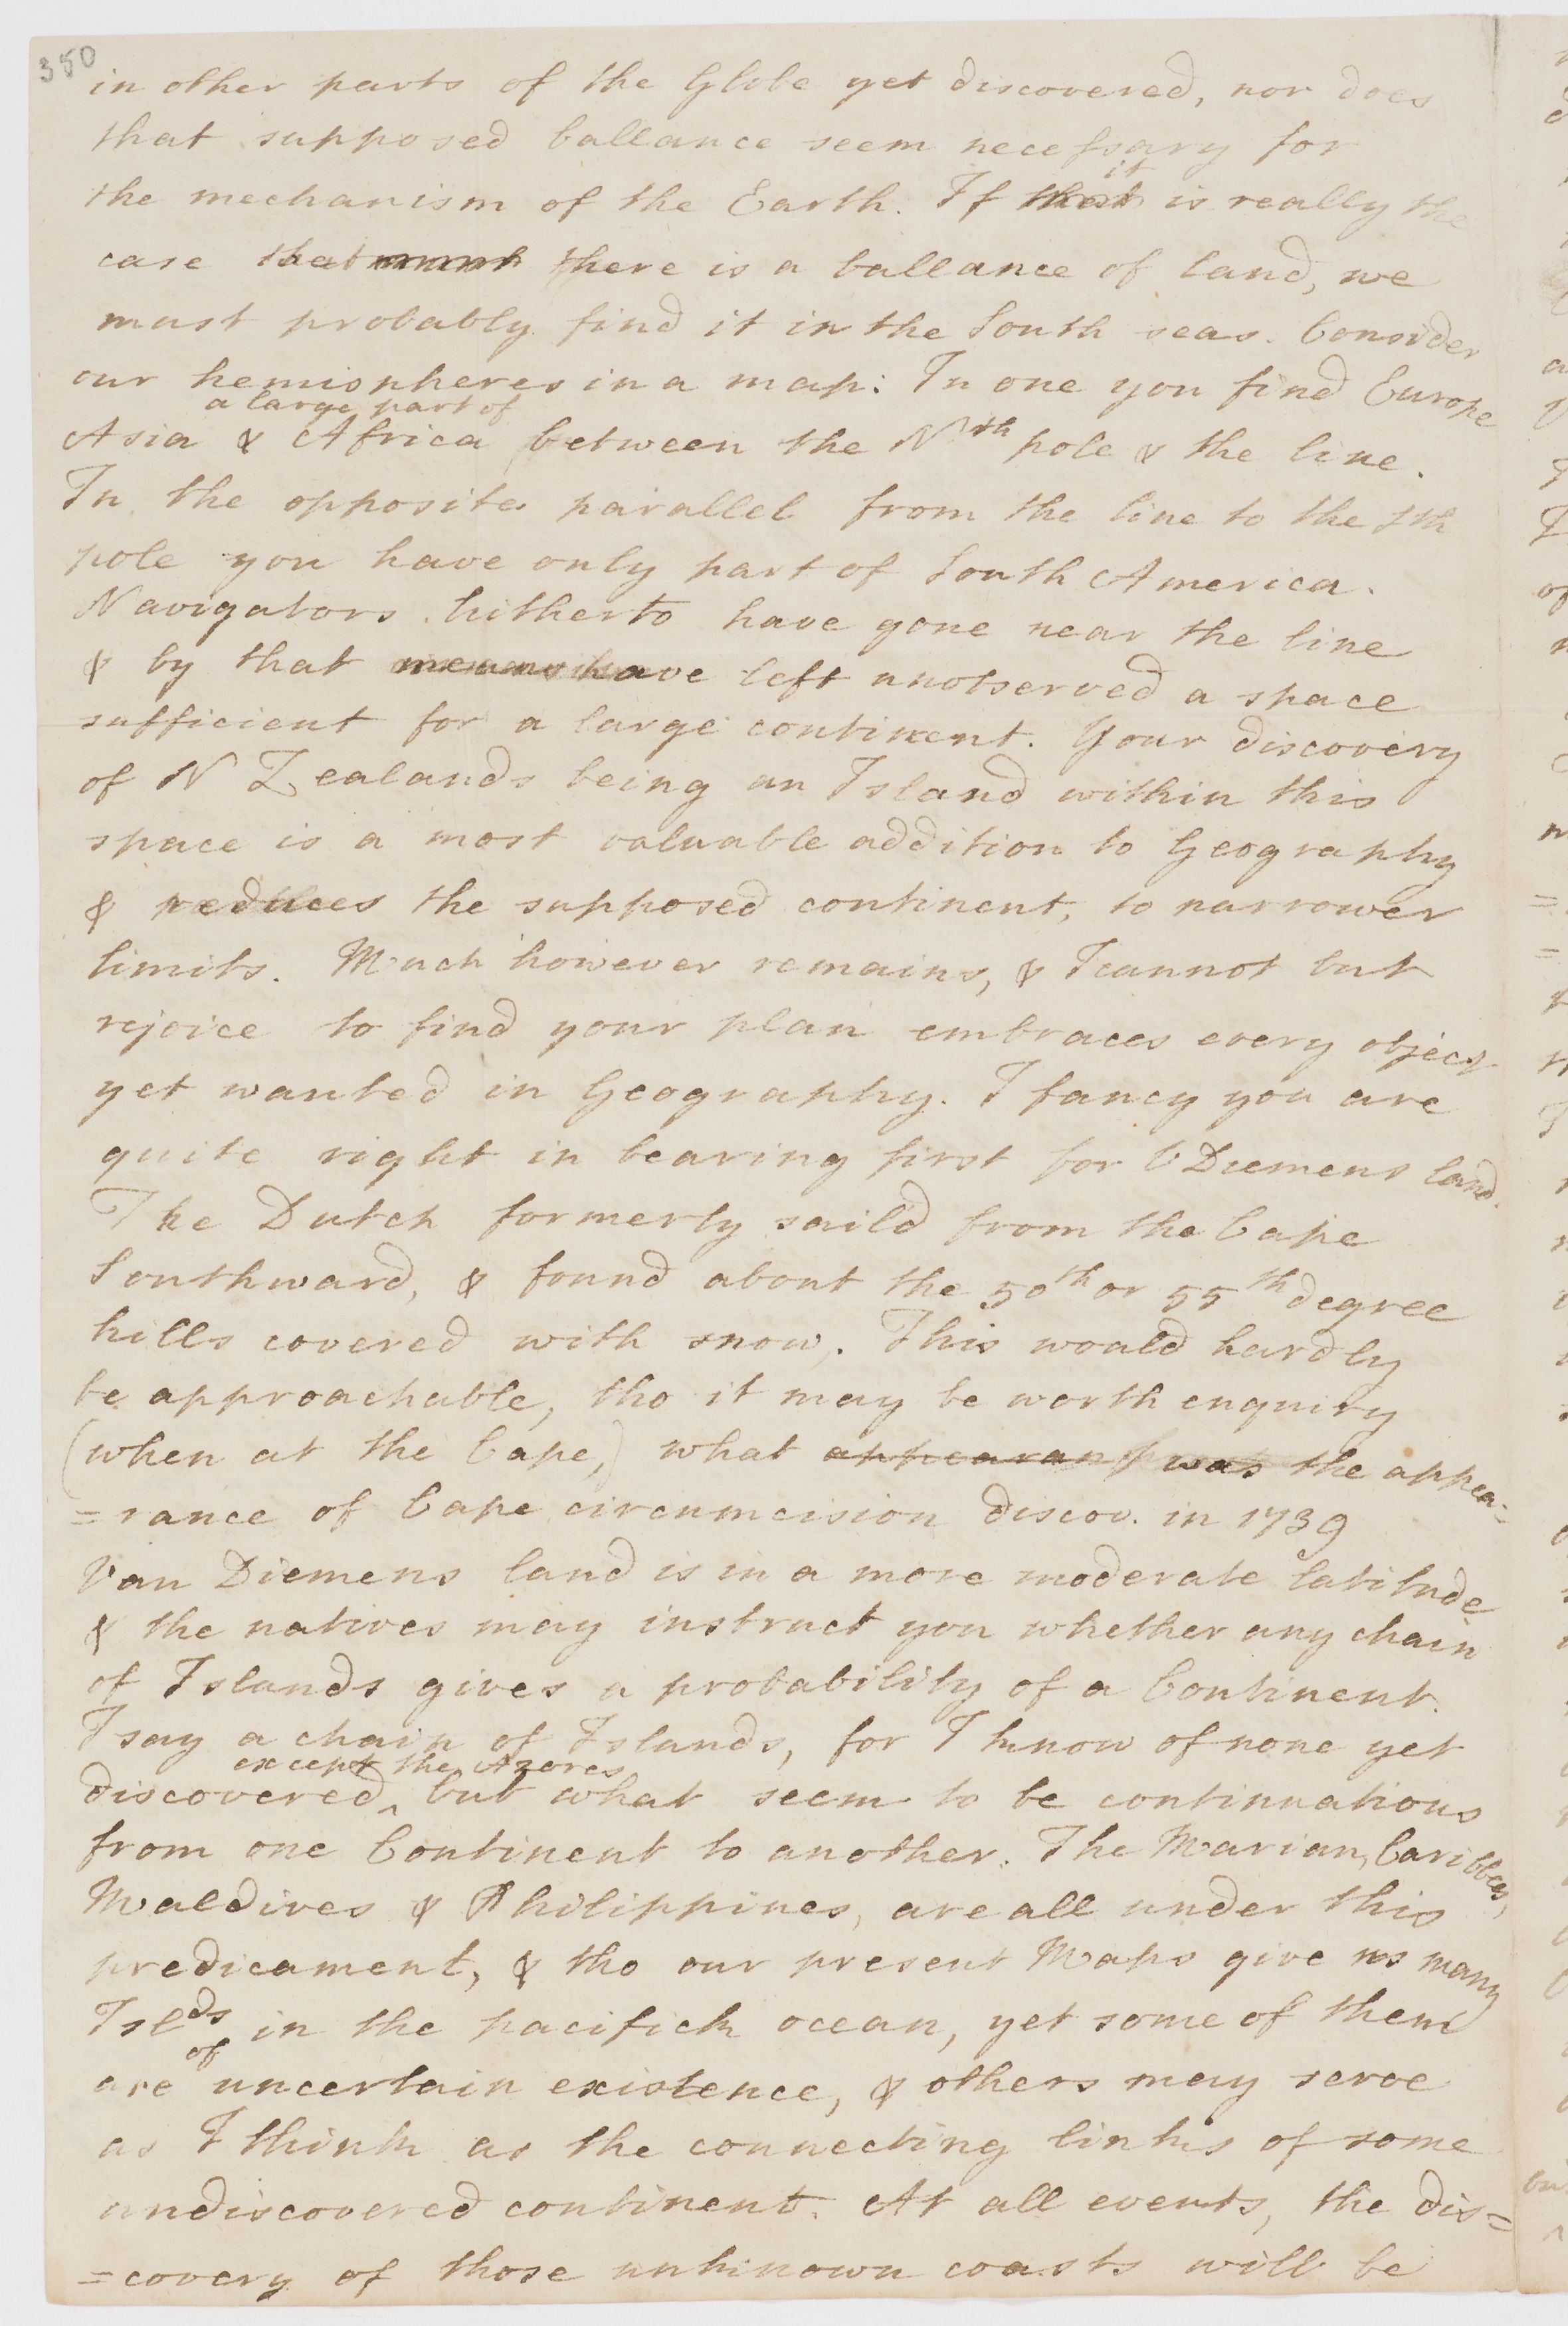 350
in other parts of the Globe yet discovered, nor does
that supposed ballance seem necessary for
it
the mechanism of the Earth. If that is really the
case that there is a ballance of land, we
must probably find it in the South seas. Consider
our hemispheres in a map: In one you find Europe
a large part of
Asia & Africa between the Nth pole & the line.
In the opposite parallel from the line to the Sth
pole you have only part of South America.
Navigators hitherto have gone near the line
& by that means have left unobserved a space
sufficient for a large continent. Your discovery
of N Zealands being an Island within this
space is a most valuable addition to Geography
& reduces the supposed continent, to narrower
limits. Much however remains, & I cannot but
rejoice to find your plan embraces every object
yet wanted in Geography. I fancy you are
quite right in bearing first for V Diemens land.
The Dutch formerly saild from the Cape
Southward, & found about the 50th or 55th degree
hills covered with snow. This would hardly
be approachable, tho it may be worth enquiry
(when at the Cape,) what appearan was the appea-
=rance of Cape circumcision discov. in 1739
Van Diemens land is in a more moderate latitude
& the natives may instruct you whether any chain
of Islands gives a probability of a Continent.
I say a chain of Islands, for I know of none yet
except the Azores
discovered^ but what seem to be continuations
from one Continent to another. The Marian, Caribbees,
Maldives & Philippines, are all under this
predicament, & tho our present Maps give us many
Islds in the pacifick ocean, yet some of them
of
are uncertain existence, & others may serve
as I think as the connecting links of some
undiscovered continent. At all events, the dis=
=covery of those unknown coasts will be